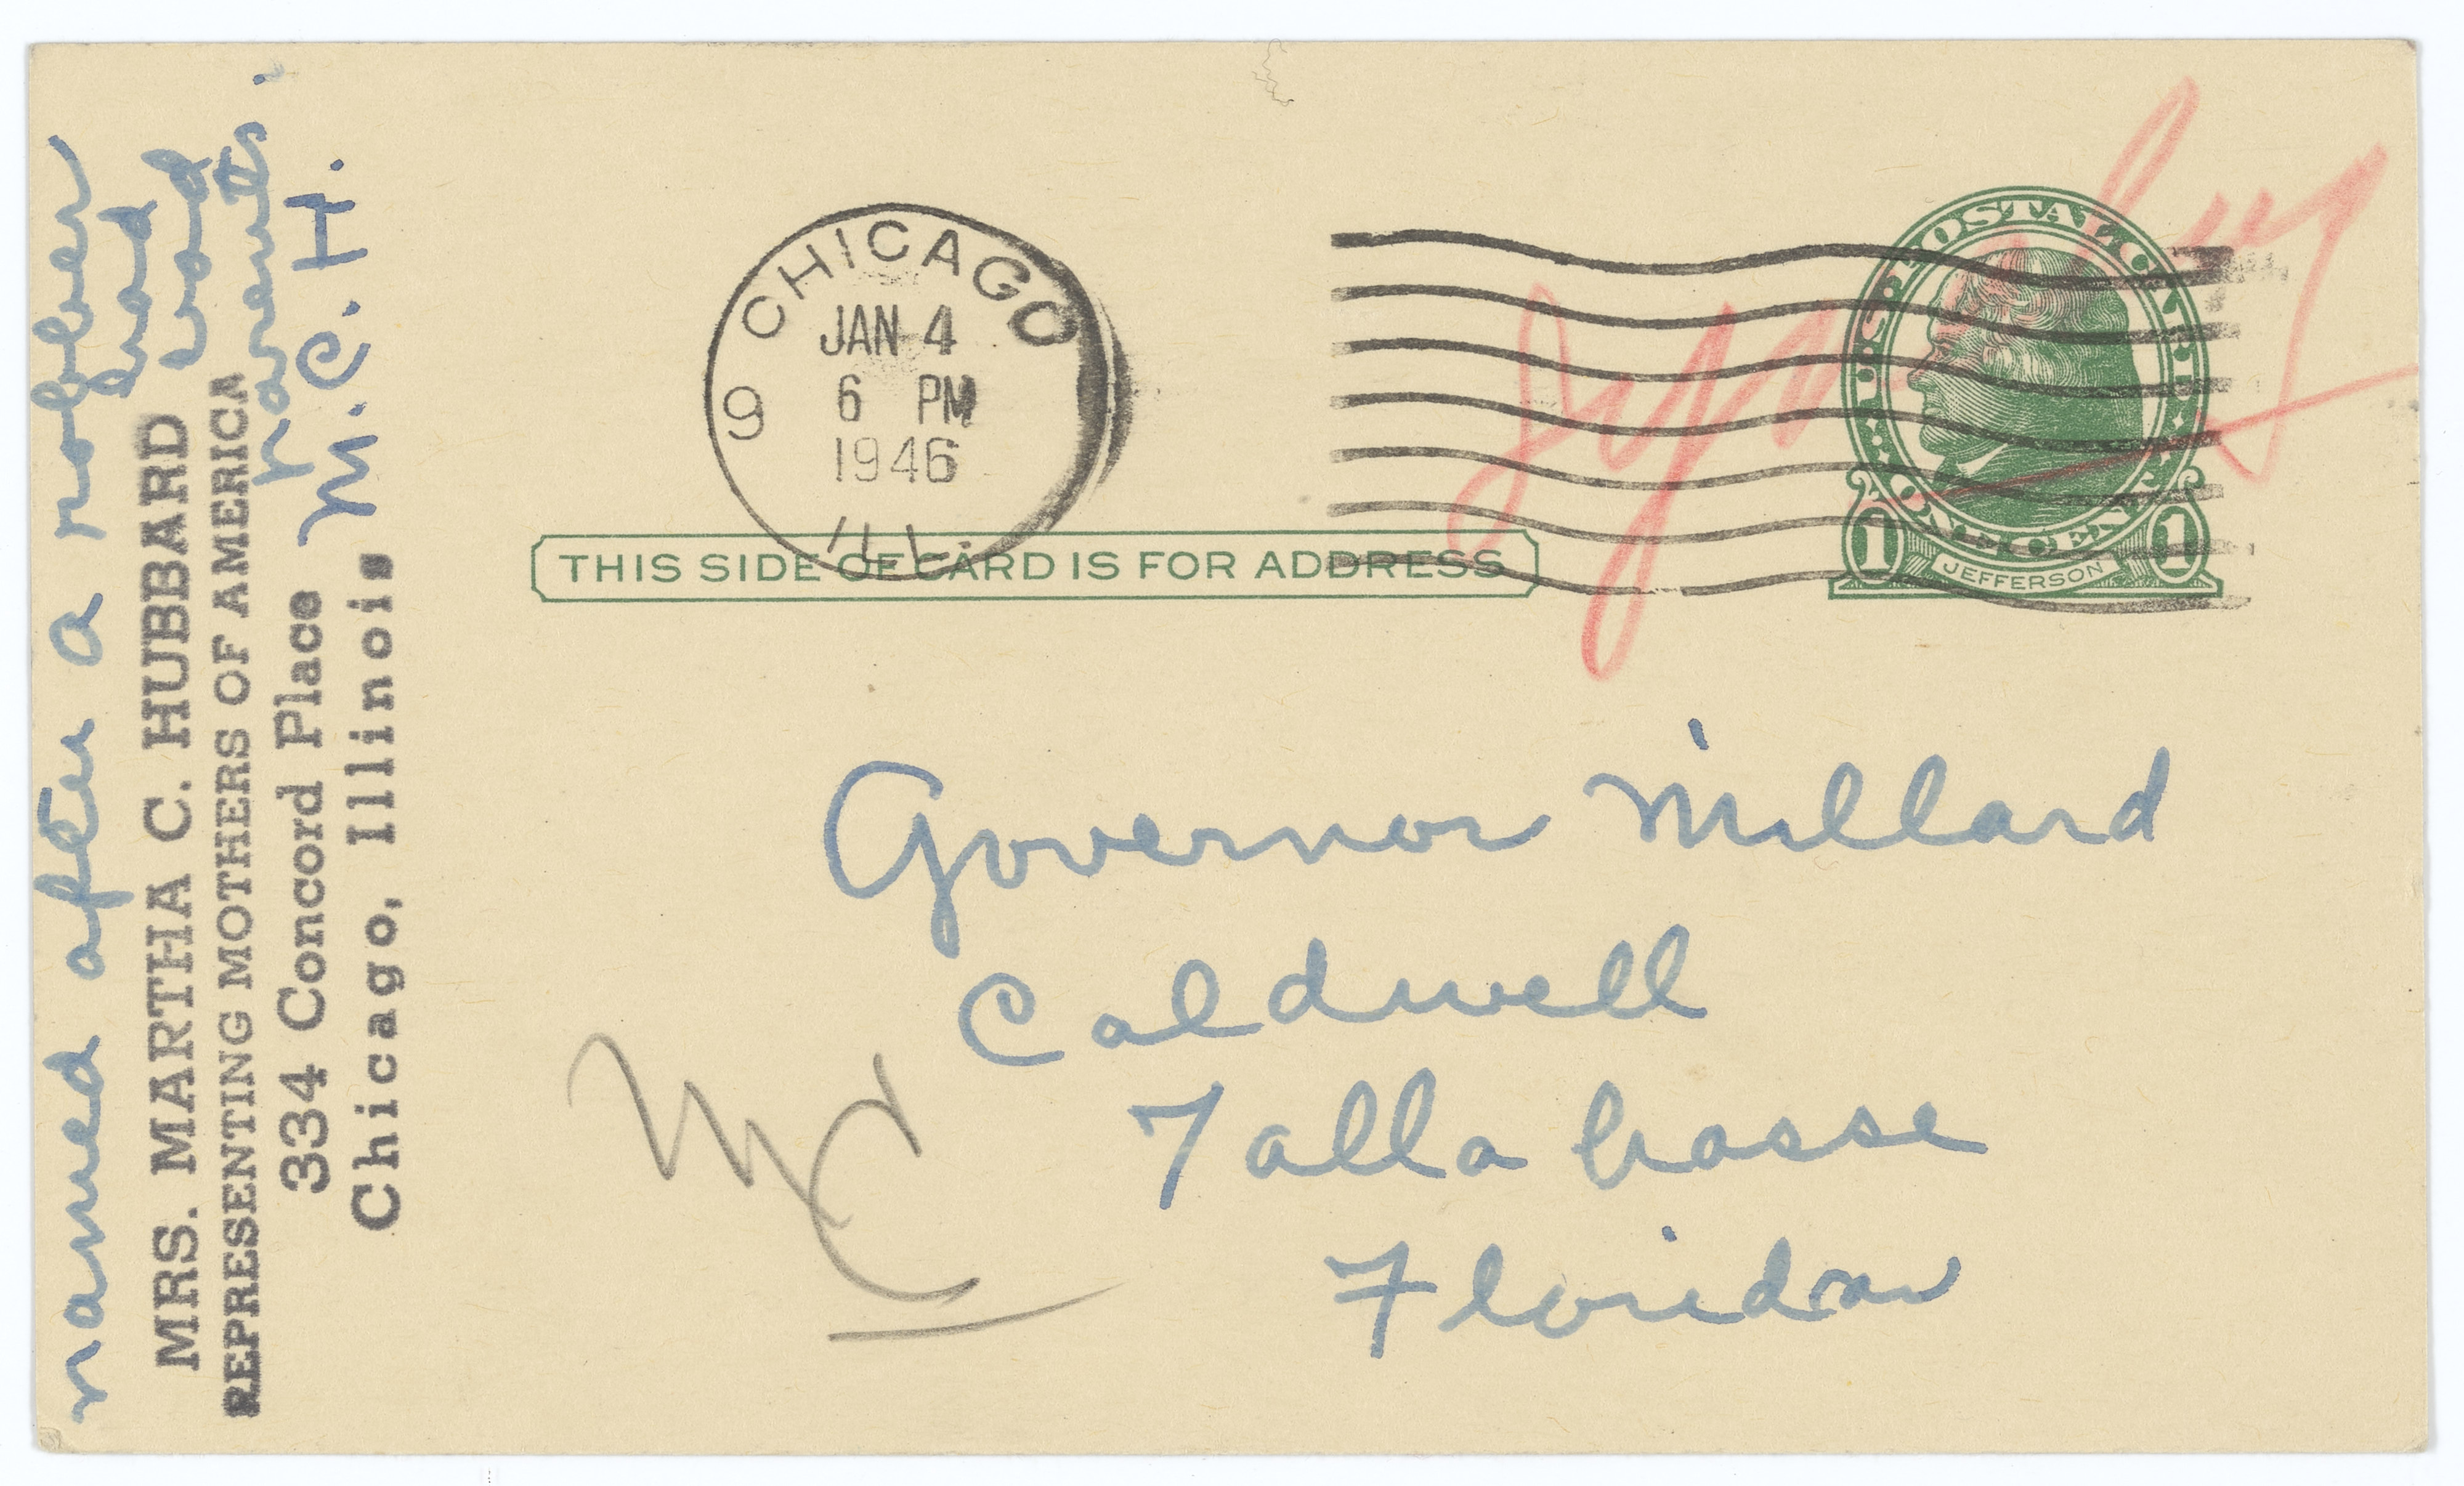 named after a robber
had
bad
parents.
M.C.H.
MRS. MARTHA C. HUBBARD
REPRESENTING MOTHERS OF AMERICA
334 Concord Place
Chicago, Illinois
CHICAGO
JAN 4
6 PM
1946
9
ILL.
THIS SIDE OF CARD IS FOR ADDRESS
U.S. POSTAL CARD
ONE CENT
1 JEFFERSON 1
Governor Millard
Caldwell
Talla hasse
Florida
MC